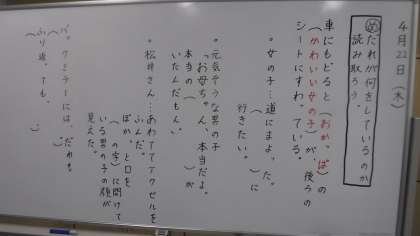 4月22日（木）
め だれが何をしているのか
読み取ろう。
車にもどると（おかっぱ）の
（かわいい女の子）が後ろの
シートにすわっている。
・女の子…道にまよった。
（　　）に
行きたい。
・元気そうな男の子
「お母ちゃん、本当だよ。
本当の（　　）が
いたんだもん」
・松井さん…あわててアクセルを
ふんだ。
ぽかっと口を
（　の字）に開けて
いる男の子の顔が
見えた。
バックミラーには、だれも
（　　）
ふり返っても、
（　　）